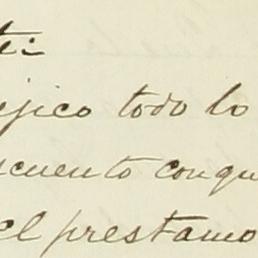 te:
ejico todo lo
scuento conqu
el prestamo